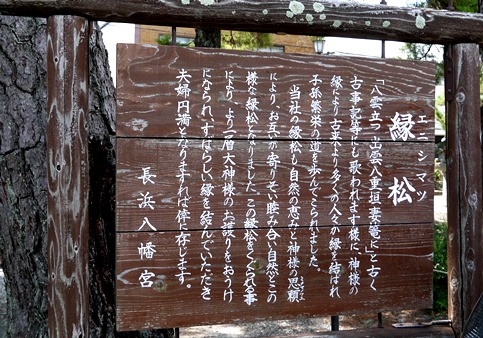 エニシマツ
縁松
「八雲立つ出雲八重垣妻篭に」と古く
古事記等にも歌われます様に、神様の
縁により古来より多くの人々が縁を結ばれ
子孫繁栄の道を歩んでこられました。
当社の縁松も自然の恵みと神様の思頼
により、お互いが寄りそい睦み合い自然とこの
様な縁松となりました。この縁松をくぐられる事
により、より一層大神様のお護りをおうけ
になられ、すばらしい縁を結んでいただき
夫婦円満となりますれば倖に存じます。
長浜八幡宮